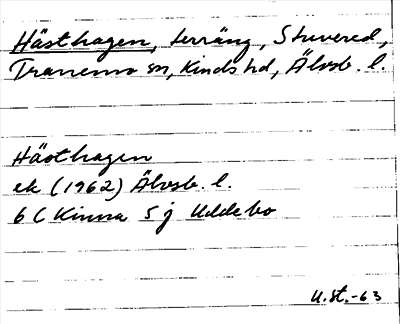 Hästhagen, terräng, Stuvered,
Tranemo sn, Kinds hd, Älvsb. l.
Hästhagen
ek (1962) Älvsb. l.
6 C Kinna 5 j Uddebo
U.St.-63